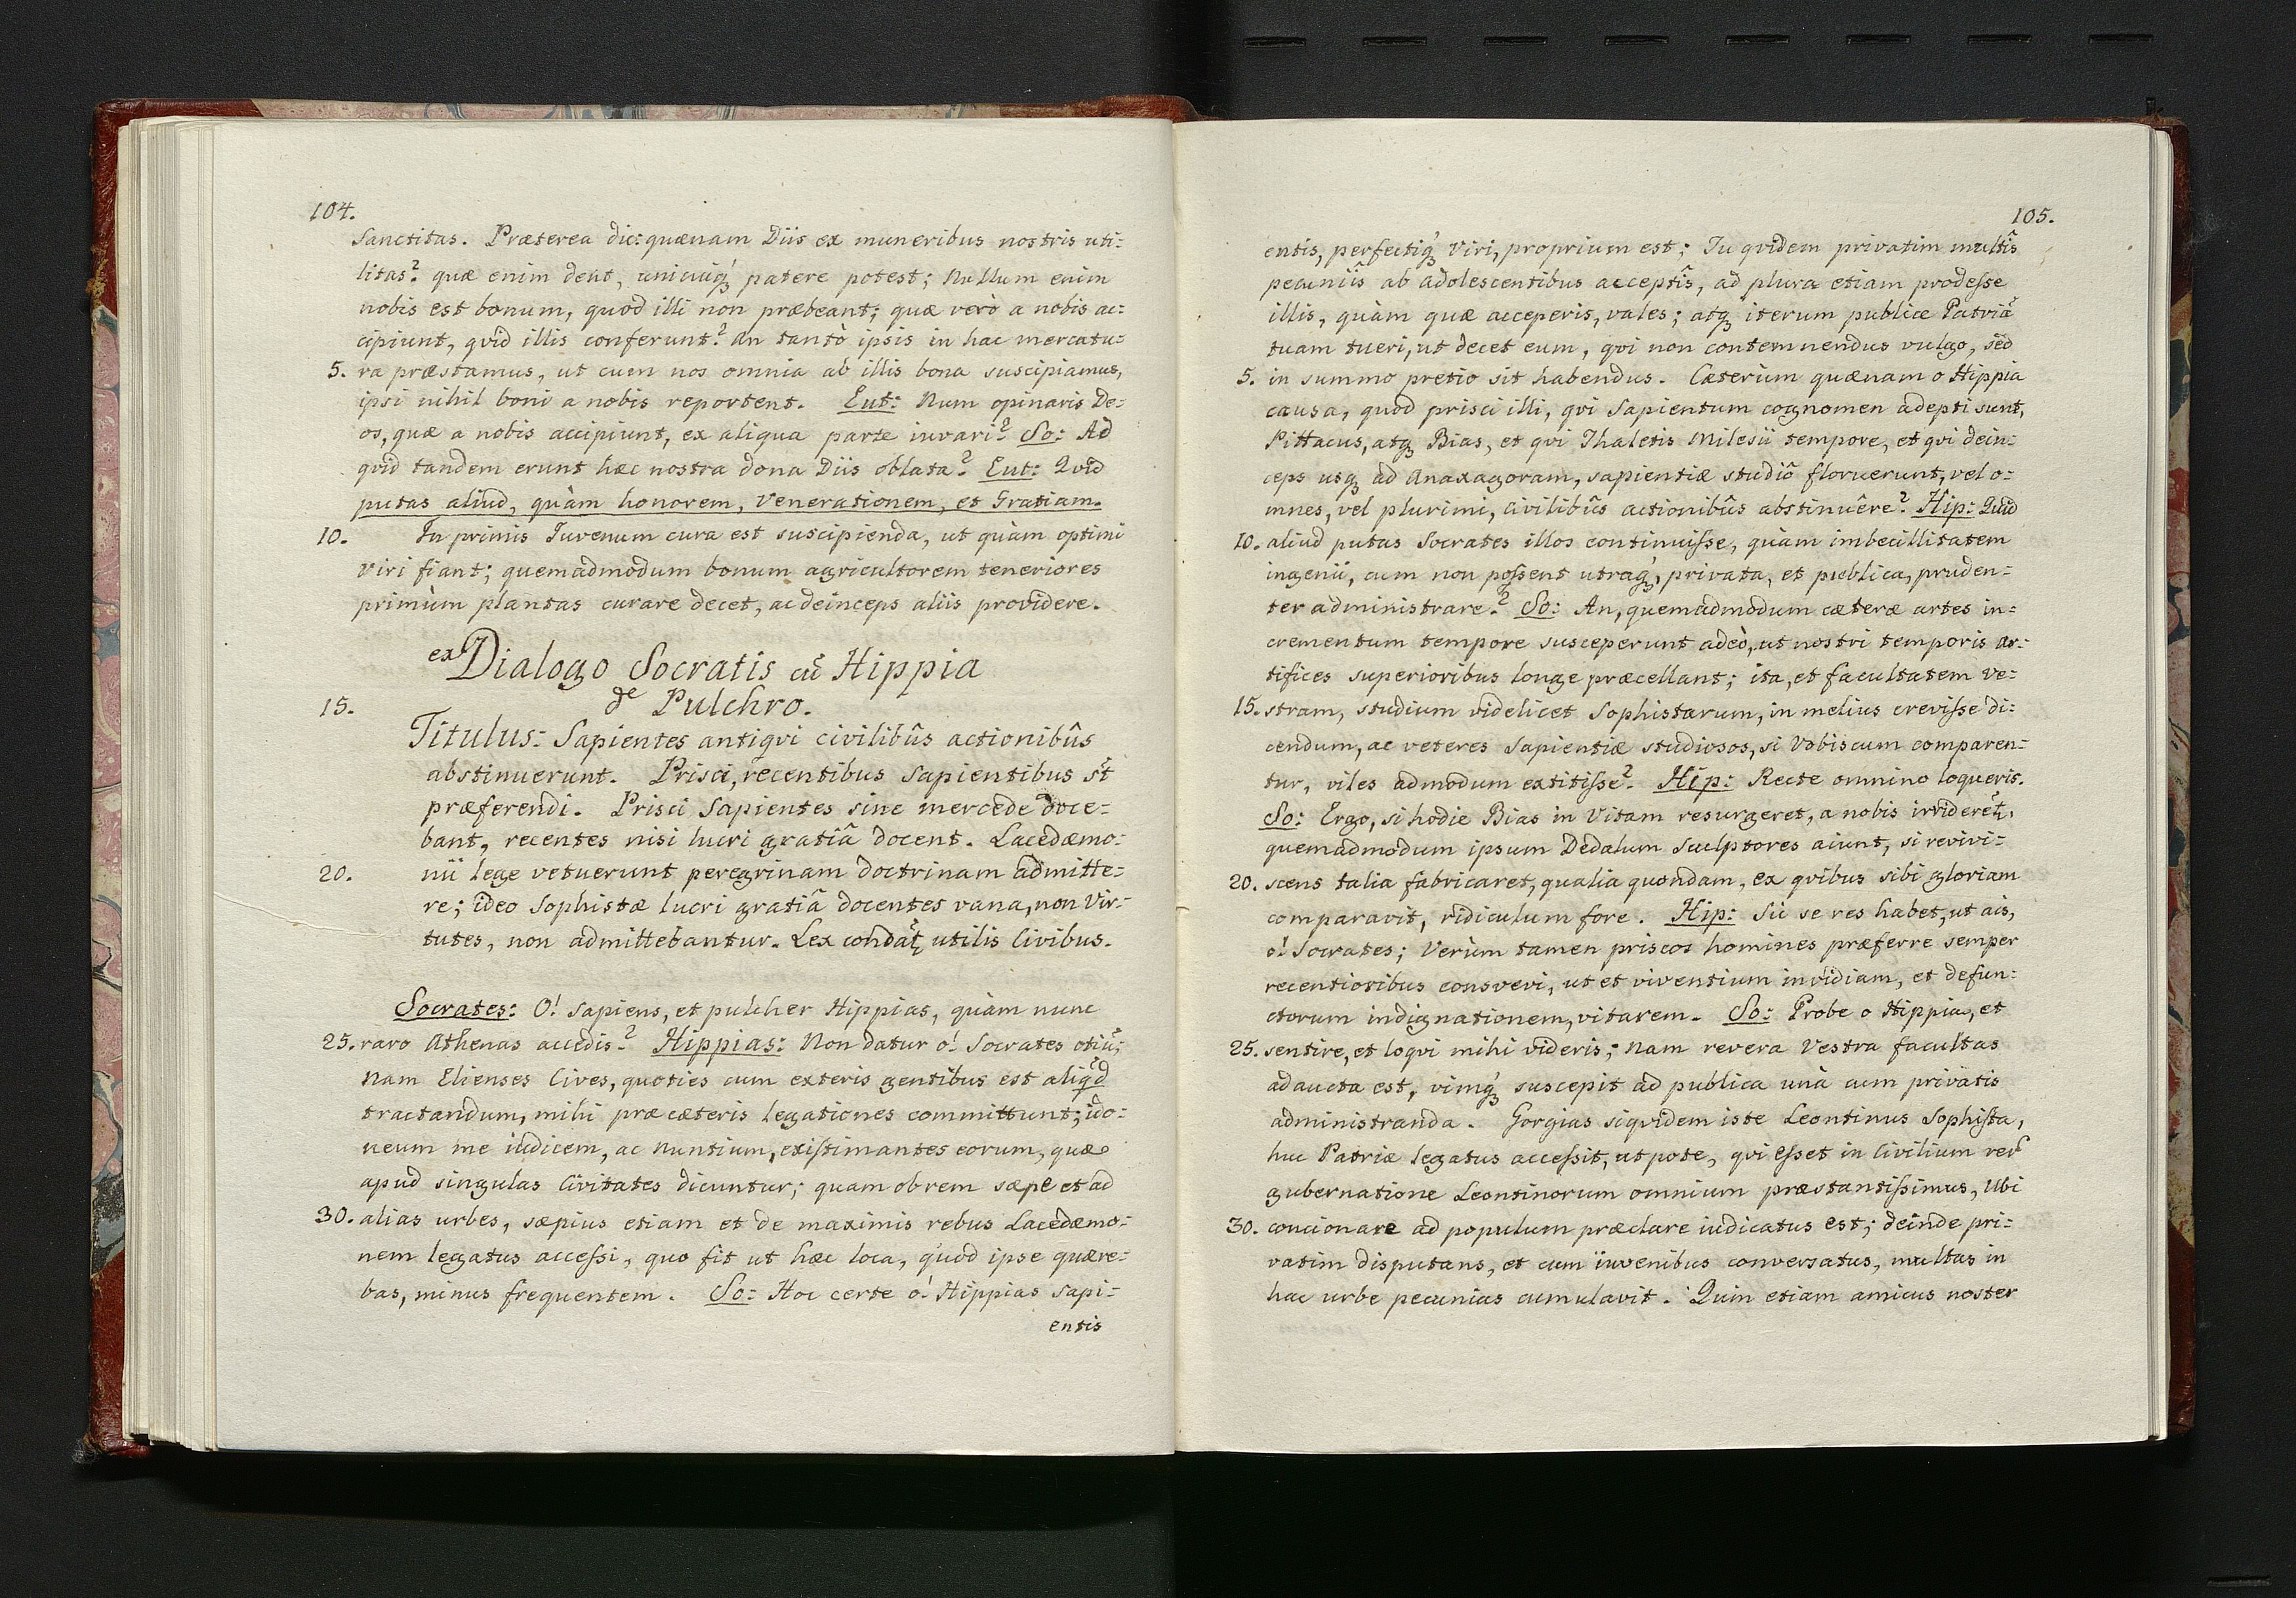 104.
Sanctitas. Præterea dic: quænam Diis ex muneribus nostris uti:
litas? quæ enim dent, unicuiq́ꝫ patere potest; Nullum enim
nobis est bonum, quod illi non præbeant; quæ verò a nobis ac:
cipiunt, qvid illis conferunt? An tantò ipsis in hac mercatu:
5. ra præstamus, ut cum nos omnia ab illis bona suscipiamus,
ipsi nihil boni a nobis reportent. Eut: Num opinaris De:
os, quæ a nobis accipiunt, ex aliqua parte iuvari? So: Ad
qvid tandem erunt hæc nostra dona Diis oblata? Eut: Qvid
putas aliud, quàm honorem, Venerationem, et Gratiam.
10. In primis Iuvenum cura est suscipienda, ut quàm optimi
viri fiant; quemadmodum bonum agricultorem teneriores
primùm plantas curare decet, ac deinceps aliis providere.
ex Dialogo Socratis cũ Hippia
15. de Pulchro.
Titulus: Sapientes antiqvi civilibûs actionibûs
abstinuerunt. Prisci, recentibus Sapientibus st̃
præferendi. Prisci Sapientes sine mercede doce:
bant, recentes nisi lucri gratiâ docent. Lacedæmo:
20. nii lege vetuerunt peregrinam doctrinam admitte:
re; ideo Sophistæ lucri gratiâ docentes vana, non Vir:
tutes, non admittebantur. Lex condat̃ꝫ utilis Civibus.
Socrates: O! Sapiens, et pulcher Hippias, quàm nunc
25. raro Athenas accedis? Hippias: Non datur o! Socrates otiũ;
Nam Elienses Cives, quoties cum exteris gentibus est aliq̃d
tractandum, mihi præ cæteris legationes committunt; ido:
neum me iudicem, ac Nuntium, exiſtimantes eorum, quæ
apud singulas Civitates dicuntur; quam ob rem sæpe et ad
30. alias urbes, sæpius etiam et de maximis rebus Lacedæmo:
nem legatus acceſsi, quo fit ut hæc loca, quod ipse quære:
bas, minus frequentem. So: Hoc certe o! Hippias Sapi:
entis
105.
entis, perfectiq́ꝫ Viri, proprium est; Tu qvidem privatim multîs
pecuniîs ab adolescentibus acceptîs, ad plura etiam prodeſse
illis, quàm quæ acceperis, vales; atqꝫ iterum publice Patriã
tuam tueri, ut decet eum, qvi non contemnendus vulgo, sed
5. in summo pretio sit habendus. Cæterùm quænam o Hippia
causa, quod prisci illi, qvi Sapientum cognomen adepti sunt,
Pittacus, atqꝫ Bias, et qvi Thaletis Milesii tempore, et qvi dein:
ceps usqꝫ ad Anaxagoram, sapientiæ studiô floruerunt, vel o:
mnes, vel plurimi, Civilibûs actionibûs abstinuêre? Hip: Quid
10. aliud putas Socrates illos continuiſse, quàm imbecillitatem
ingenii, cum non poſsent utraq́ꝫ, privata, et publica, pruden:
ter administrare? So: An, quemadmodum cæteræ artes in:
crementum tempore susceperunt adeò, ut nostri temporis ar:
tifices superioribus longe præcellant; ita, et facultatem Ve:
15. stram, studium videlicet Sophistarum, in melius creviſse di:
cendum, ac veteres Sapientiæ studiosos, si Vobiscum comparen:
tur, viles admodum extitiſse? Hip: Recte omnino loqueris.
So: Ergo, si hodie Bias in Vitam resurgeret, a nobis irrideret̃ꝫ,
quemadmodum ipsum Dedalum Sculptores aiunt, si revivi:
20. scens talia fabricaret, qualia quondam, ex qvibus sibi gloriam
comparavit, ridiculum fore. Hip: Sic se res habet, ut ais,
o! Socrates; Verùm tamen priscos homines præferre semper
recentioribus consvevi, ut et viventium invidiam, et defun:
ctorum indignationem, vitarem. So: Probe o Hippia, et
25. sentire, et loqvi mihi videris; Nam revera Vestra facultas
adaucta est, vimq́ꝫ suscepit ad publica unà cum privatis
administranda. Gorgias siqvidem iste Leontinus Sophiſta,
huc Patriæ legatus acceſsit, utpote, qvi eſset in Civilium rer̃
gubernatione Leontinorum omnium præstantiſsimus, Ubi
30. concionare ad populum præclare iudicatus est; deinde pri:
vatim disputans, et cum iuvenibus conversatus, multas in
hac urbe pecunias cumulavit. Quin etiam amicus noster